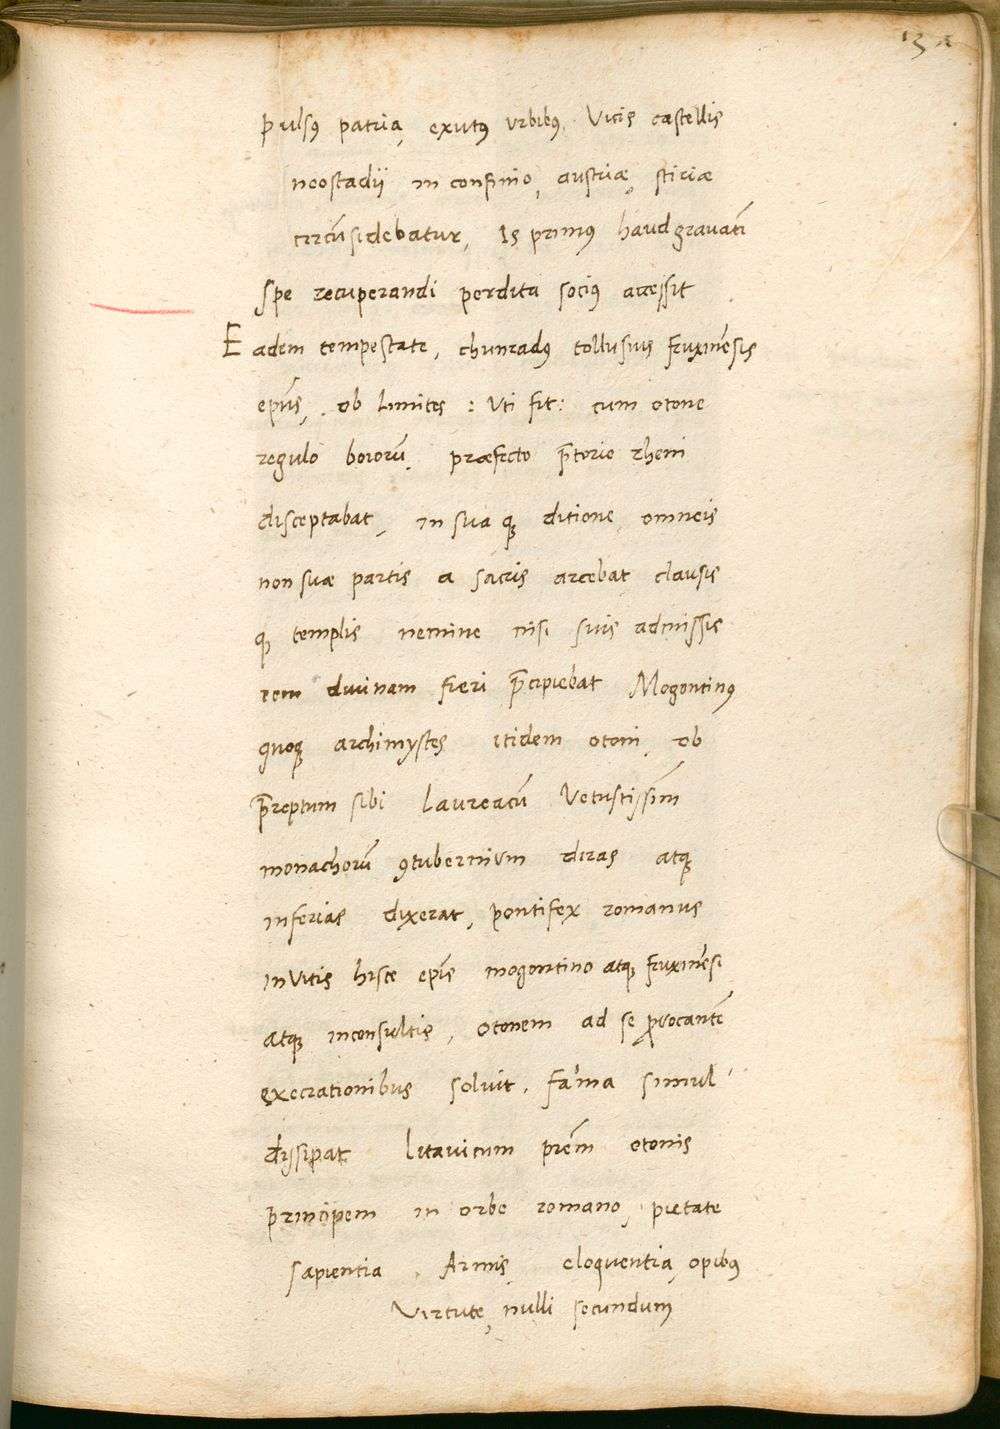 13
pulsꝰ patria, exutꝰ vrbibꝰ, Vicis castellis
neostadij in confinio, austriæ, stiriæ
circūsidebatur, Is primꝰ haud grauatī
spe recuperandi perdita sociꝰ accessit
Eadem tempestate, chunradꝰ tollusius fruxinēsis
epūs, ob limites : Vti fit : cum otone
regulo boiorū, præfecto p̄torio rheni
disceptabat, in sua qꝫ ditione, omneis
non suæ partis a sacris arcebat clausis
qꝫ templis nemine nisi suis admissis
rem diuinam fieri p̄cipiebat Mogontinꝰ
quoqꝫ archimystes itidem otoni, ob
p̄reptum sibi Laureacū Vetustissīm
monachorū ꝯtubernium diras atqꝫ
inferias dixerat, pontifex romanus
inuitis hisce epīs mogontino atqꝫ fruxinēsi
atqꝫ inconsultis, otonem ad se ꝓuocantē
execrationibus soluit. fama simul
dissipat litauicum prēm otonis
principem in orbe romano, pietate
sapientia, Armis, eloquentia, opibꝰ
Virtute, nulli secundum